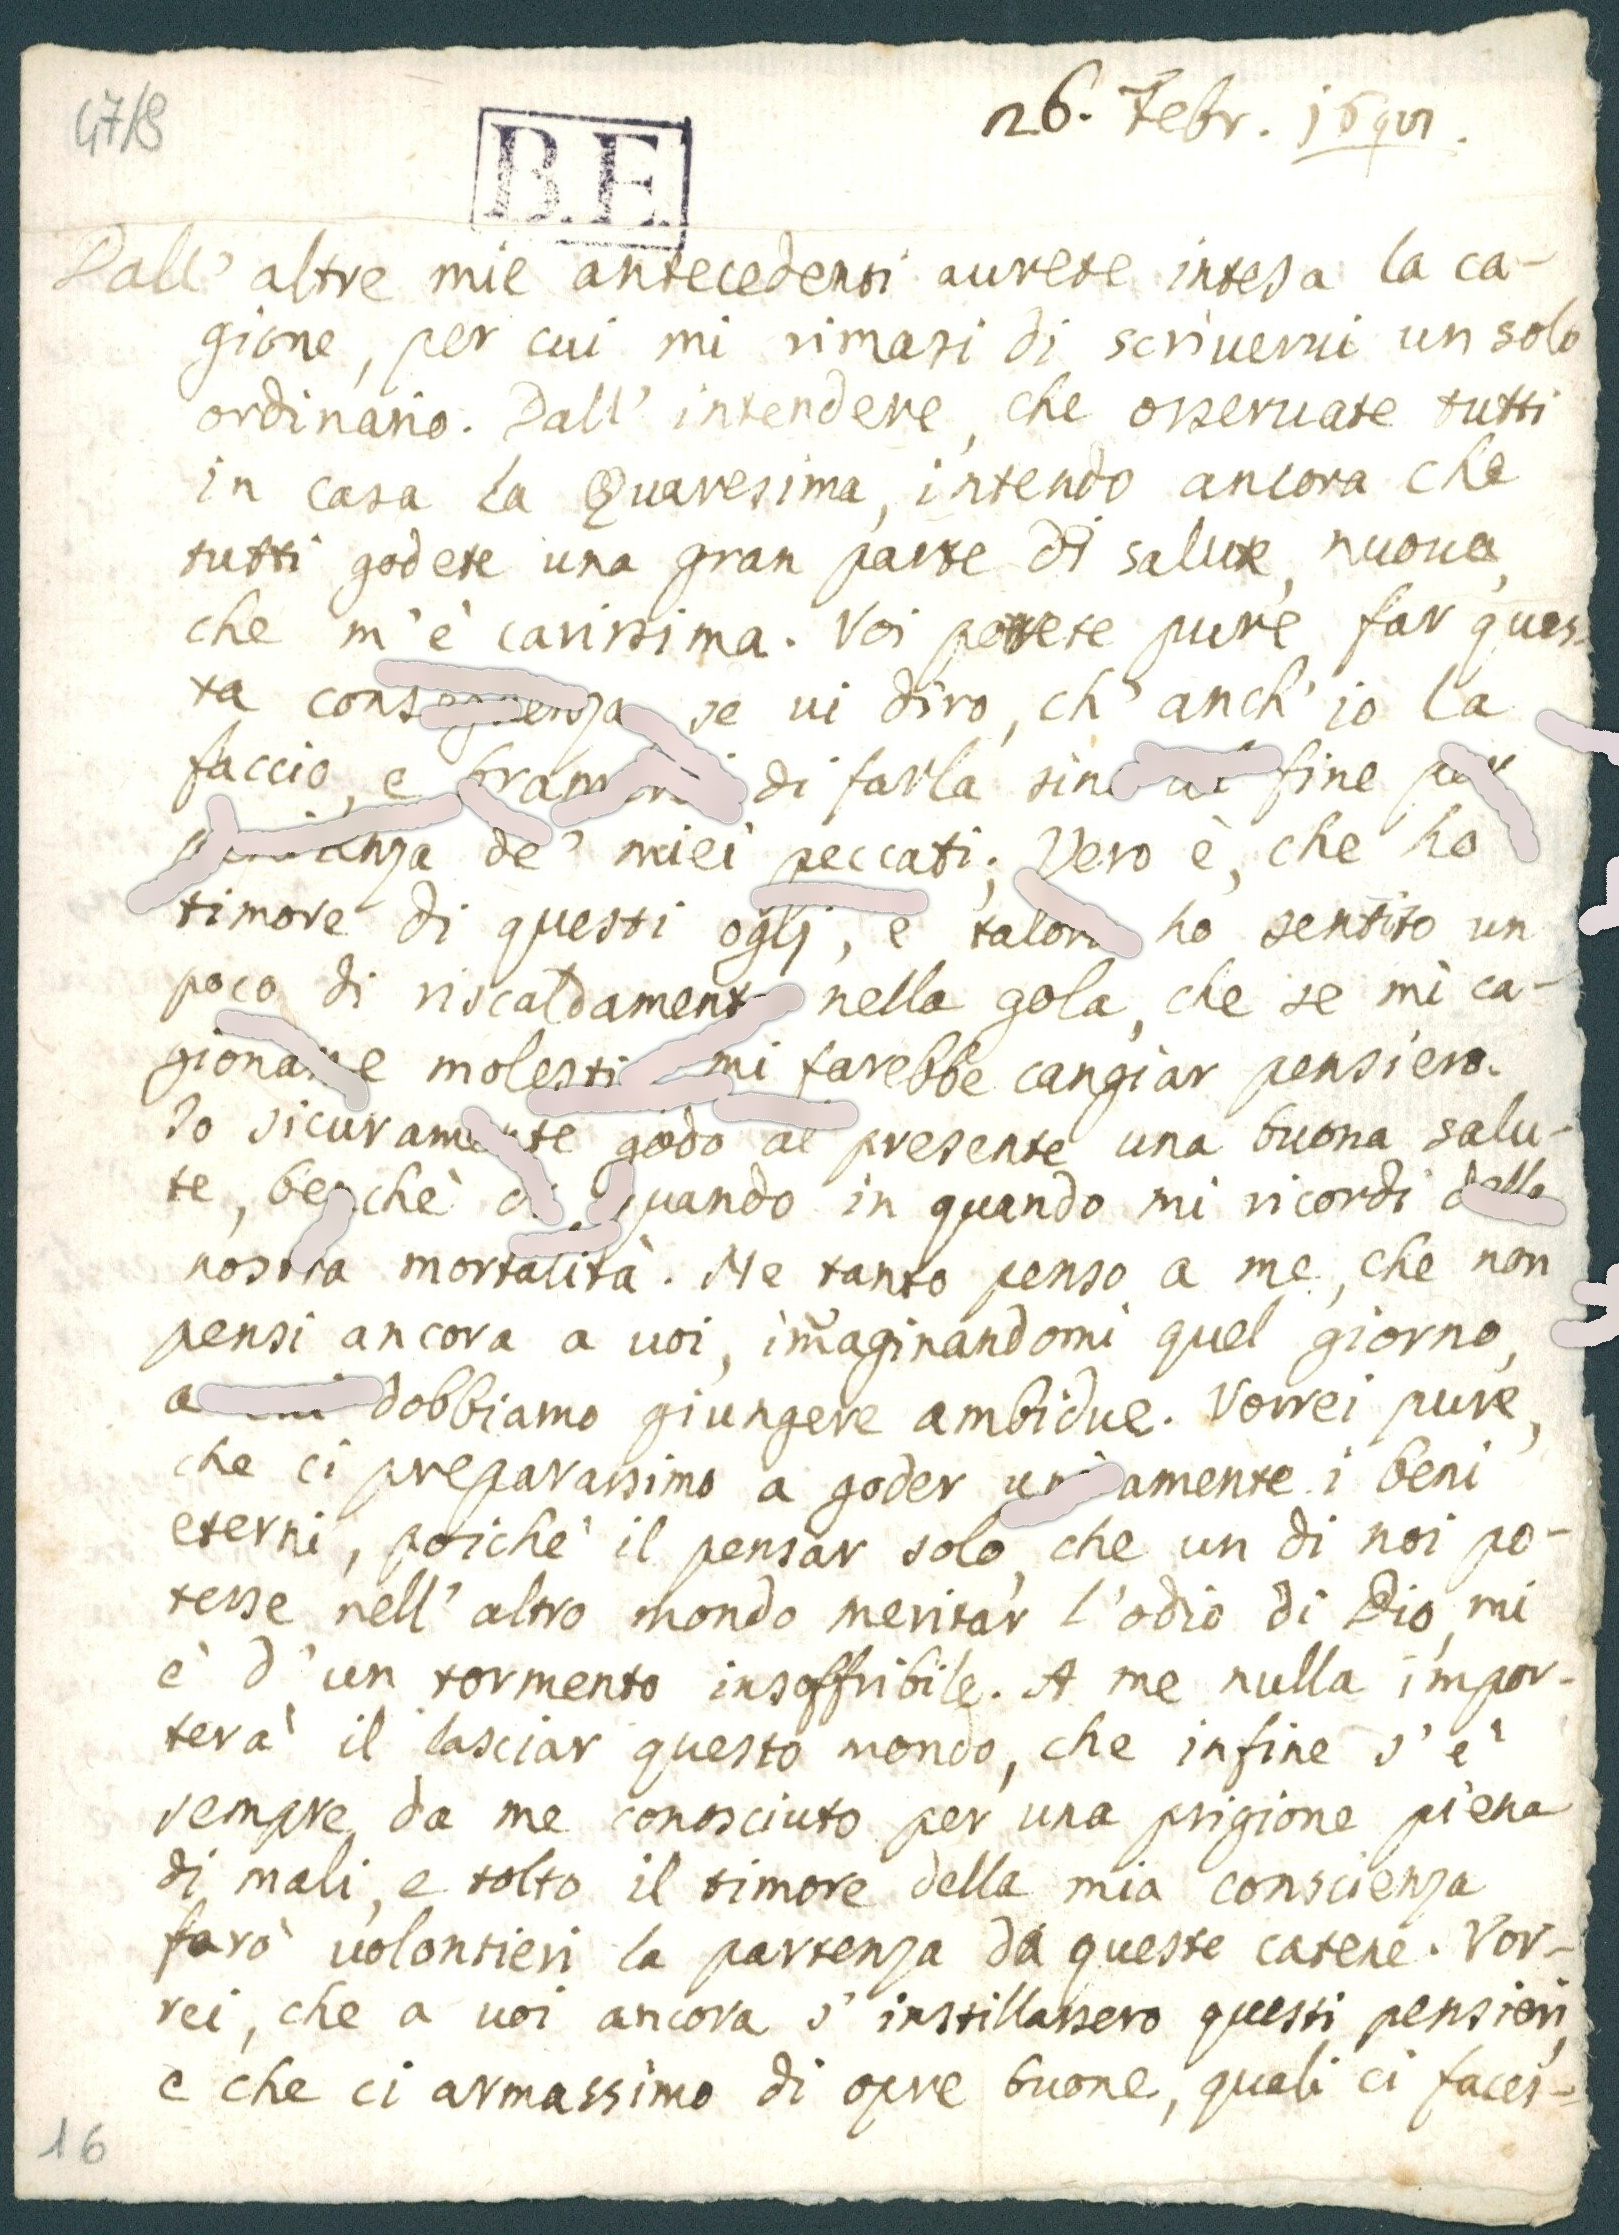 47/8
26. Febr. 1697.
B.E.
Dall' altre mie antecedenti aurete intesa la ca-
gione, per cui mi rimasi di scriuerui un solo
ordinario. Dall' intendere, che osseruate tutti
in casa la Quaresima, intendo ancora che
tutti godete una gran parte di salute, nuoua,
che m'è carissima. Voi potrete pure far ques-
ta conseguenza se ui dirò, ch' anch' io la
faccio, e di farla sino al fine per
de' miei peccati. Vero è, che ho
timore di questi oglj, e talora ho sentito un
poco di riscaldamento nella gola, che se mi ca-
gionasse molestia mi farebbe cangiar pensiero.
Io sicuramente godo al presente una buona salu-
te, benchè di quando in quando mi ricordi della
nostra mortalità. Ne tanto penso a me, che non
pensi ancora a uoi, imaginandomi quel giorno,
a cui dobbiamo giungere ambidue. Vorrei pure,
che ci preparassimo a goder unitamente i beni
eterni, poichè il pensar solo, che un di noi po-
tesse nell' altro mondo meritar l'odio di Dio, mi
è d'un tormento insoffribile. A me nulla impor-
terà il lasciar questo mondo, che infine s'è
sempre da me conosciuto per una prigione piena
di mali, e tolto il timore della mia conscienza
farò uolontieri la partenza da queste catene. Vor-
rei, che a uoi ancora s' instillassero questi pensieri,
e che ci armassimo di opre buone, quali ci faces-
16